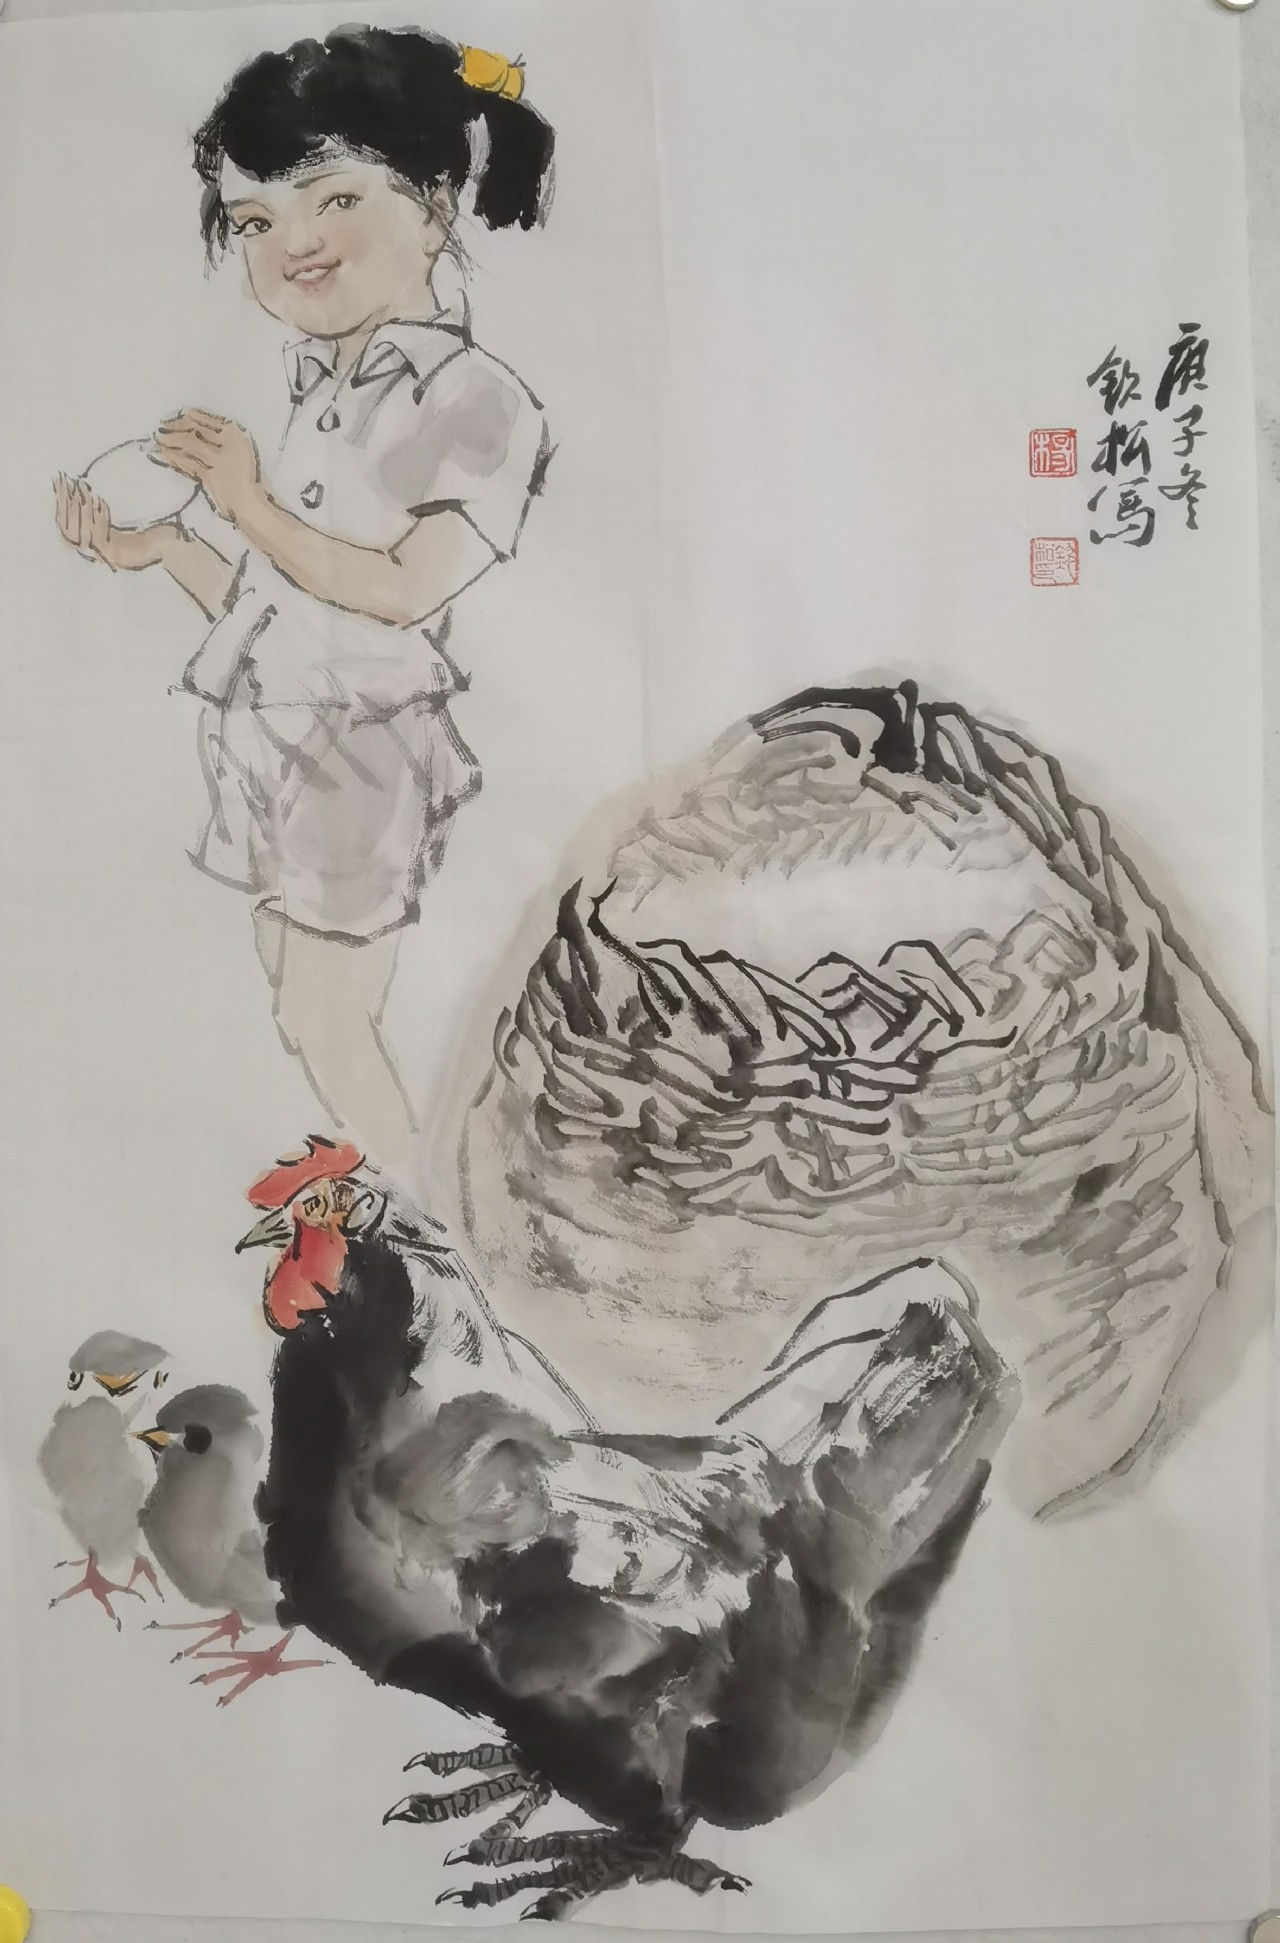 庚子冬
钦松写
楊